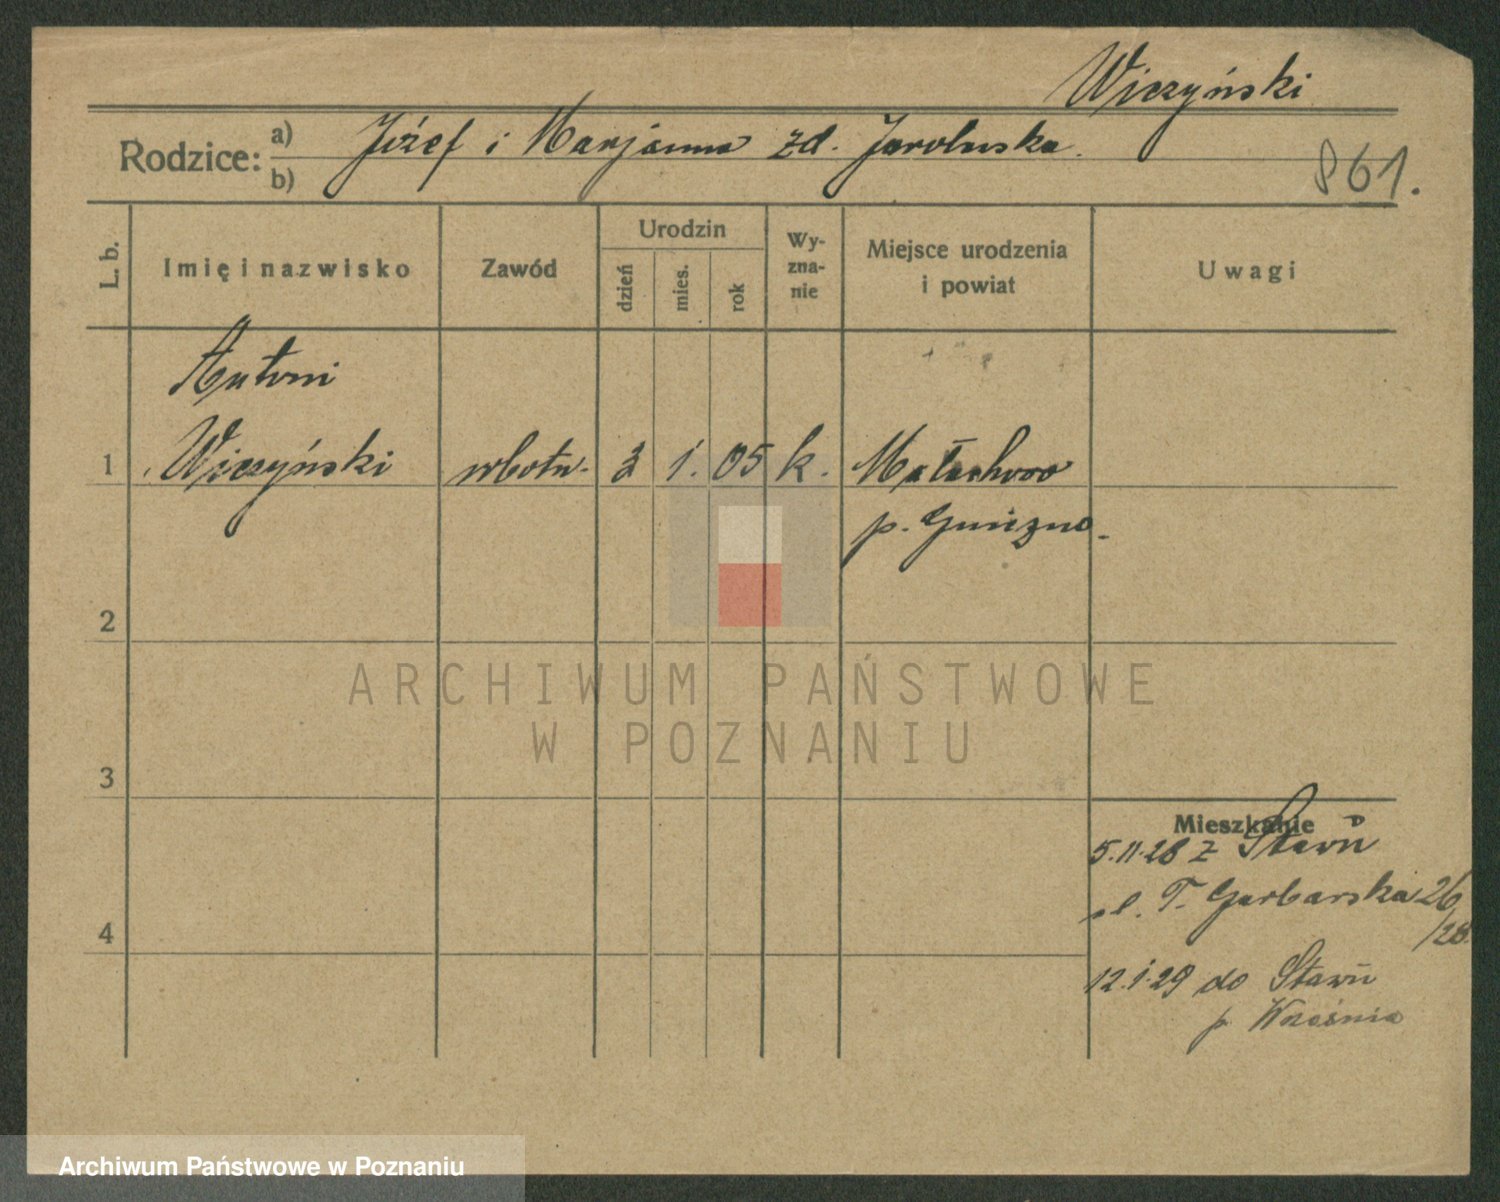 Wiczyński
Rodzice: a) b) Józef i Marjanna zd. Jaroluska.
861.
L. b.
Imię i nazwisko
Zawód
Urodzin
dzień
mies.
rok
Wy-
zna-
nie
Miejsce urodzenia
i powiat
Uwagi
Antoni
1 Wiczyński robotn. 2 1. 05 k. Małachowo
p. Gniezno.
2
ARCHIWUM PAŃSTWOWE
W POZNANIU
3
Mieszkanie
5.11.28 z Stawu
ul. T. Garbarska 26
/28.
4
12.1.29 do Stawu
p. Września
Archiwum Państwowe w Poznaniu